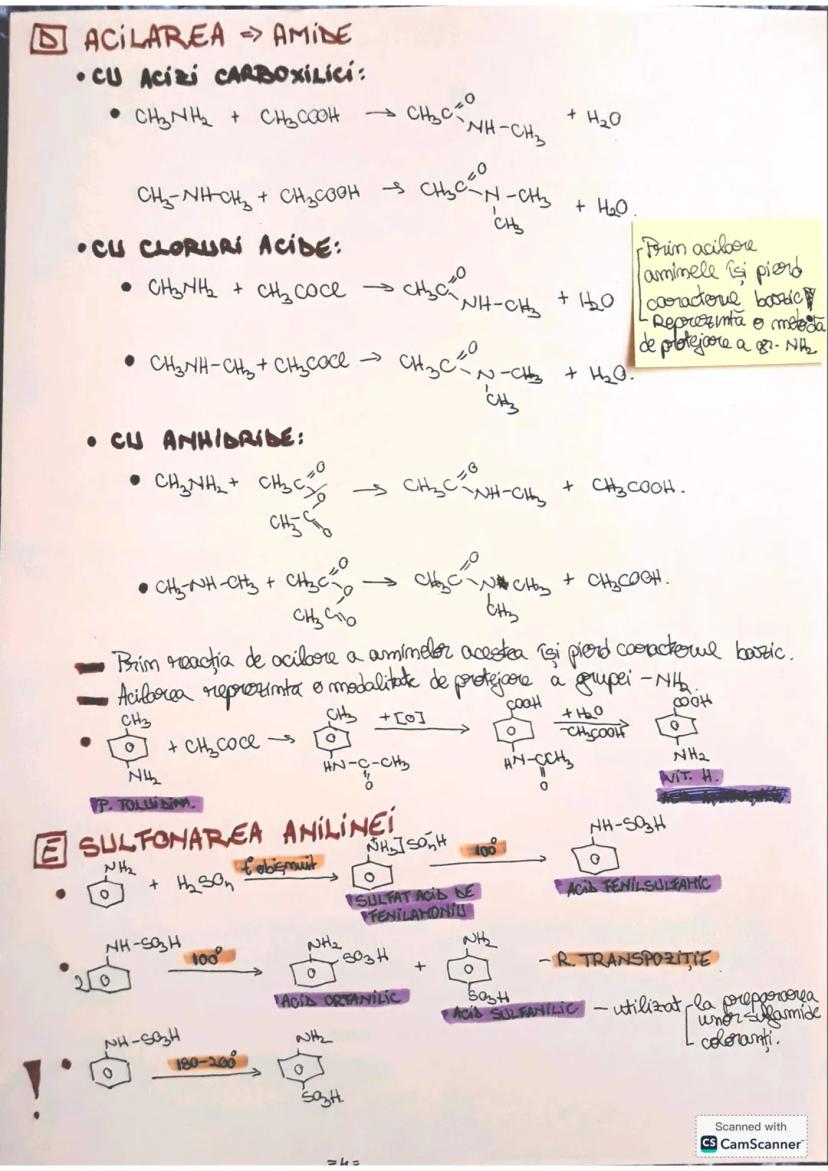 D ACILAREA => AMIDE
• CU ACIZI CARBOXILICI:
• CH3NH2 + CH3COOH → CH3C=O NH-CH3 + H2O
CH3-NH-CH3 + CH3COOH → CH3C=O N-CH3 CH3 + H2O.
• CU CLORURI ACIDE:
• CH3NH2 + CH3COCl → CH3C=O NH-CH3 + H2O
• CH3NH-CH3 + CH3COCl → CH3C=O N-CH3 CH3 + H2O.
Prin acilare
aminele își pierd
caracterul bazic!
Reprezintă o metodă
de protejare a gr. NH2
• CU ANHIDRIDE:
• CH3NH2 + CH3C=O O CH3C=O → CH3C=O NH-CH3 + CH3COOH.
• CH3-NH-CH3 + CH3C=O O CH3C=O → CH3C=O N CH3 CH3 + CH3COOH.
— Prin reacția de acilare a aminelor acestea își pierd caracterul bazic.
— Acilarea reprezintă o modalitate de protejare a grupei -NH2.
• CH3 NH2 + CH3COCl → CH3 HN-C-CH3 O +[O] → COOH HN-CCH3 O +H2O -CH3COOH → COOH NH2
P. TOLUIDINA. VIT. H.
E SULFONAREA ANILINEI
• NH2 + H2SO4 t° obișnuit → NH3]SO4H 100° → NH-SO3H
SULFAT ACID DE FENILAMONIU
ACID FENILSULFAMIC
• 2 NH-SO3H 100° → NH2 SO3H + NH2 SO3H - R. TRANSPOZIȚIE
ACID ORTANILIC ACID SULFANILIC - utilizat la prepararea
unor sulfamide
coloranți.
! • NH-SO3H 180-200° → NH2 SO3H.
=4=
Scanned with
CS CamScanner